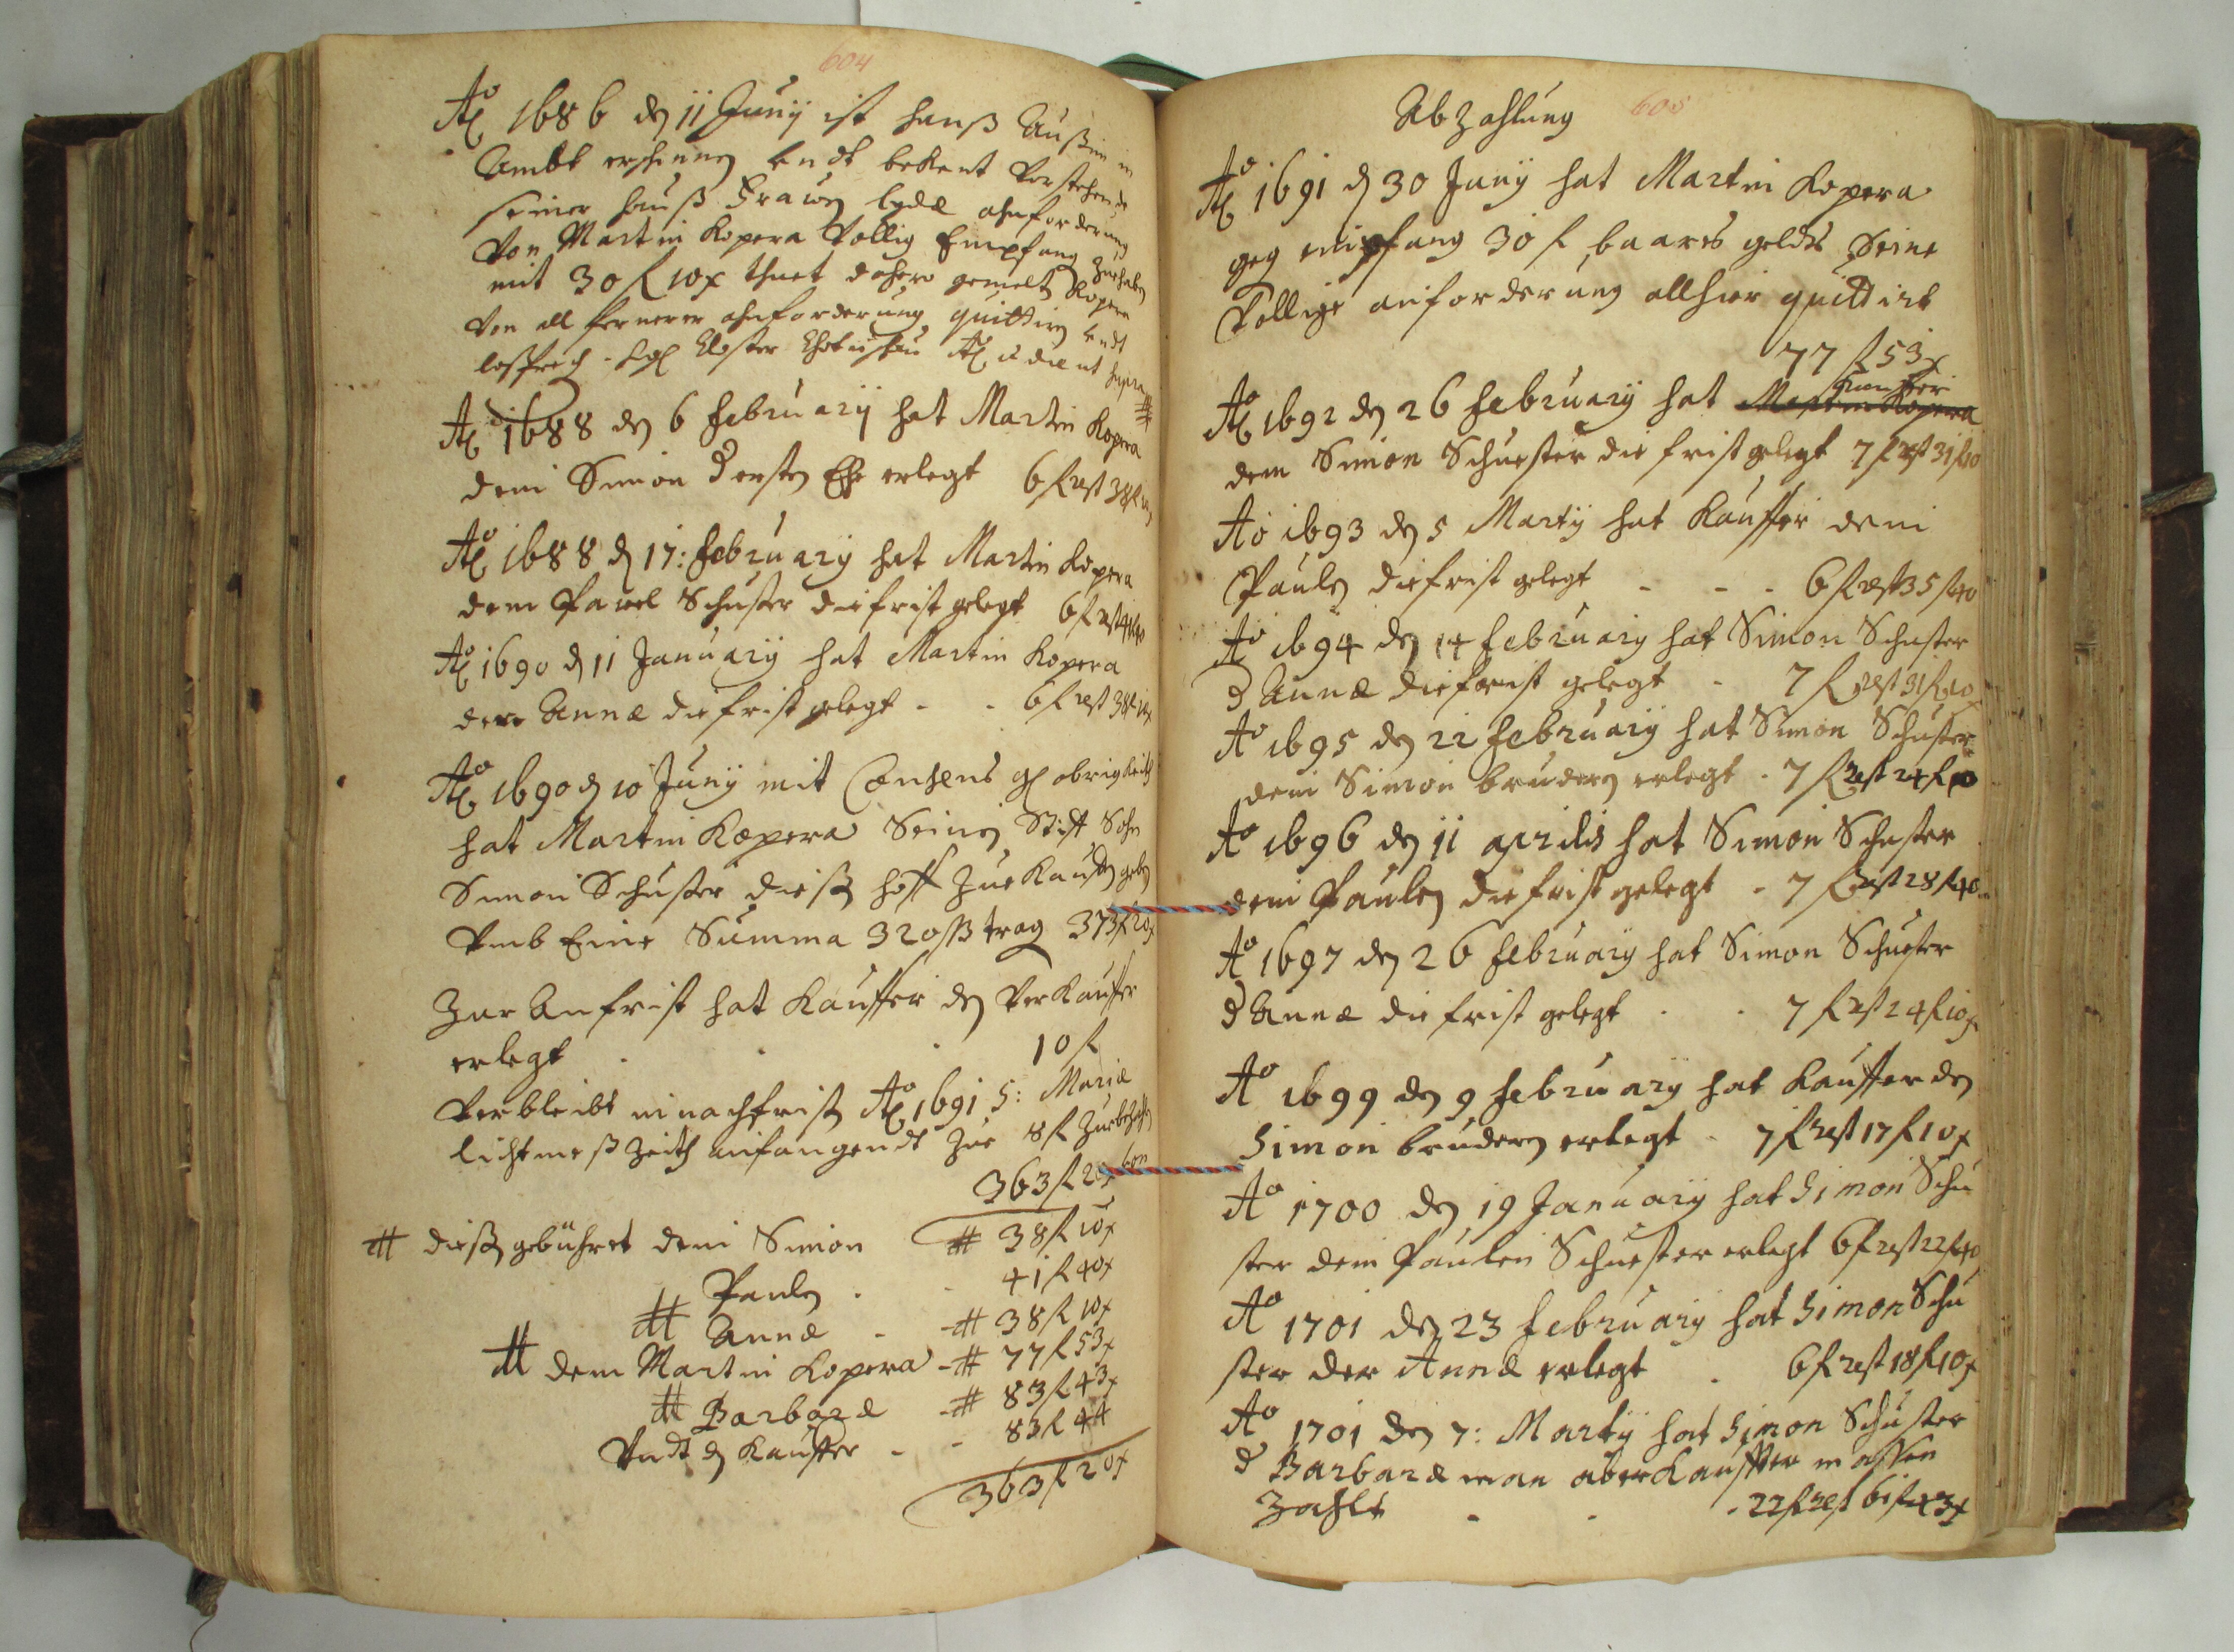 604
Ao 1686 den 11 Junÿ ist Hanß Außim in
Ambt erschinnen undt bekent vorstehende
seiner Hauß Frawen Lydæ ahnforderung
von Martin Kopera völlig Empfang zue haben
mit 30 f 10 x thuet dahero gemelten Kopera
von all fernerer ahnforderung quittiren undt
loßsprech. Closter Chotieschau Ao et die ut supra
Ao 1688 den 6 February hat Martin Kopera
dem Simon erster Ehe erlegt 6 f rest 38 f 10
Ao 1688 d 17: February hat Martin Kopera
dem Pawel Schuster die frist gelegt 6 f rest 41 f 40
Ao 1690 d 11 January hat Martin Kopera
der Annæ die frist gelegt - - 6 f rest 38 f 10 x
Ao 1690 d 10 Junÿ mit Consens gl obrigkeith
hat Martin Kopera Seinen Stiff Sohn
Simon Schuster diesen Hoff zue Kauffen geben
umb Eine Summa 320 ß trag 373 f 20 x
Zur Anfrist hat Kauffer den Verkauffer
erlegt . . . 10 f
Verbleibt in nachfristen Ao 1691 S: Mariæ
lichtmeß Zeith anfangendt zue 8 f zue bezahlen
363 f 20 x
# diesen gebühret dem Simon # 38 f 10 x
Paulen . - 41 f 40 x
# Annæ - -# 38 f 10 x
# dem Martin Kopera -# 77 f 53 x
# Barbaræ -# 83 f 43 x
Undt den Kauffer - - 83 f 44
363 f 20 x
Abzahlung 605
Ao 1691 d 30 Junÿ hat Martin Kopera
geg empfang 30 f baares geldts Seine
völlige anforderung allhier quittirt
77 f 53 x
Kauffer
Ao 1692 den 26 February hat Martin Kopera
dem Simon Schuester die frist gelegt 7 f rest 31 f 10
Ao 1693 den 5 Martÿ hat Kauffer dem
Paulen die frist gelegt - - - 6 f rest 35 f 40
Ao 1694 den 14 February hat Simon Schuster
d Annæ die frist gelegt - 7 f rest 31 f 10 x
Ao 1695 den 22 February hat Simon Schuster
dem Simon brudern erlegt - 7 f rest 24 f 10
Ao 1696 den 11 aprilis hat Simon Schuster
dem Paulen die frist gelegt - 7 f rest 28 f 40
Ao 1697 den 26 February hat Simon Schuester
d Annæ die frist gelegt . . 7 f rest 24 f 10 x
Ao 1699 den 9 February hat Kauffer den
Simon brudern erlegt - 7 f rest 17 f 10 x
Ao 1700 den 19 January hat Simon Schu
ster dem Paulen Schuester erlegt 6 f rest 22 f 40
Ao 1701 den 23 February hat Simon Schu
ster der Annæ erlegt . 6 f rest 18 f 10 x
Ao 1701 den 7: Martÿ hat Simon Schuster
d Barbaræ man aber Kauffer massen
Zahlt - - - 22 f rest 61 f 43 x